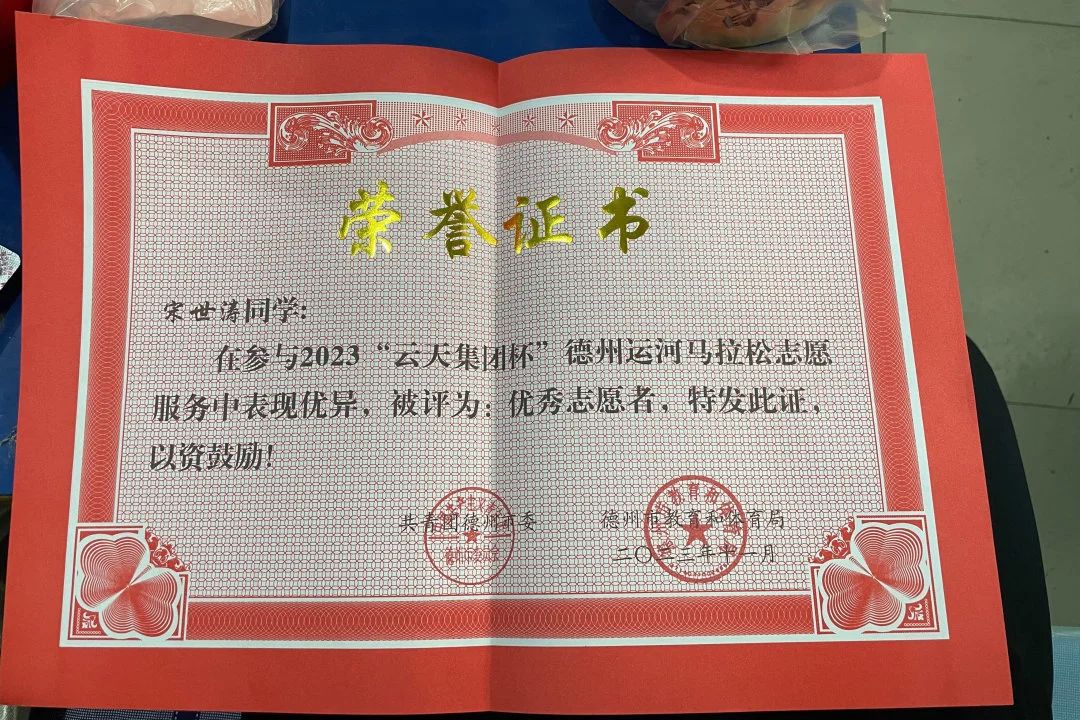 荣誉证书
宋世涛同学:
在参与2023“云天集团杯”德州运河马拉松志愿
服务中表现优异，被评为：优秀志愿者，特发此证，
以资鼓励!
共青团德州市委 德州市教育和体育局
二〇二三年十一月